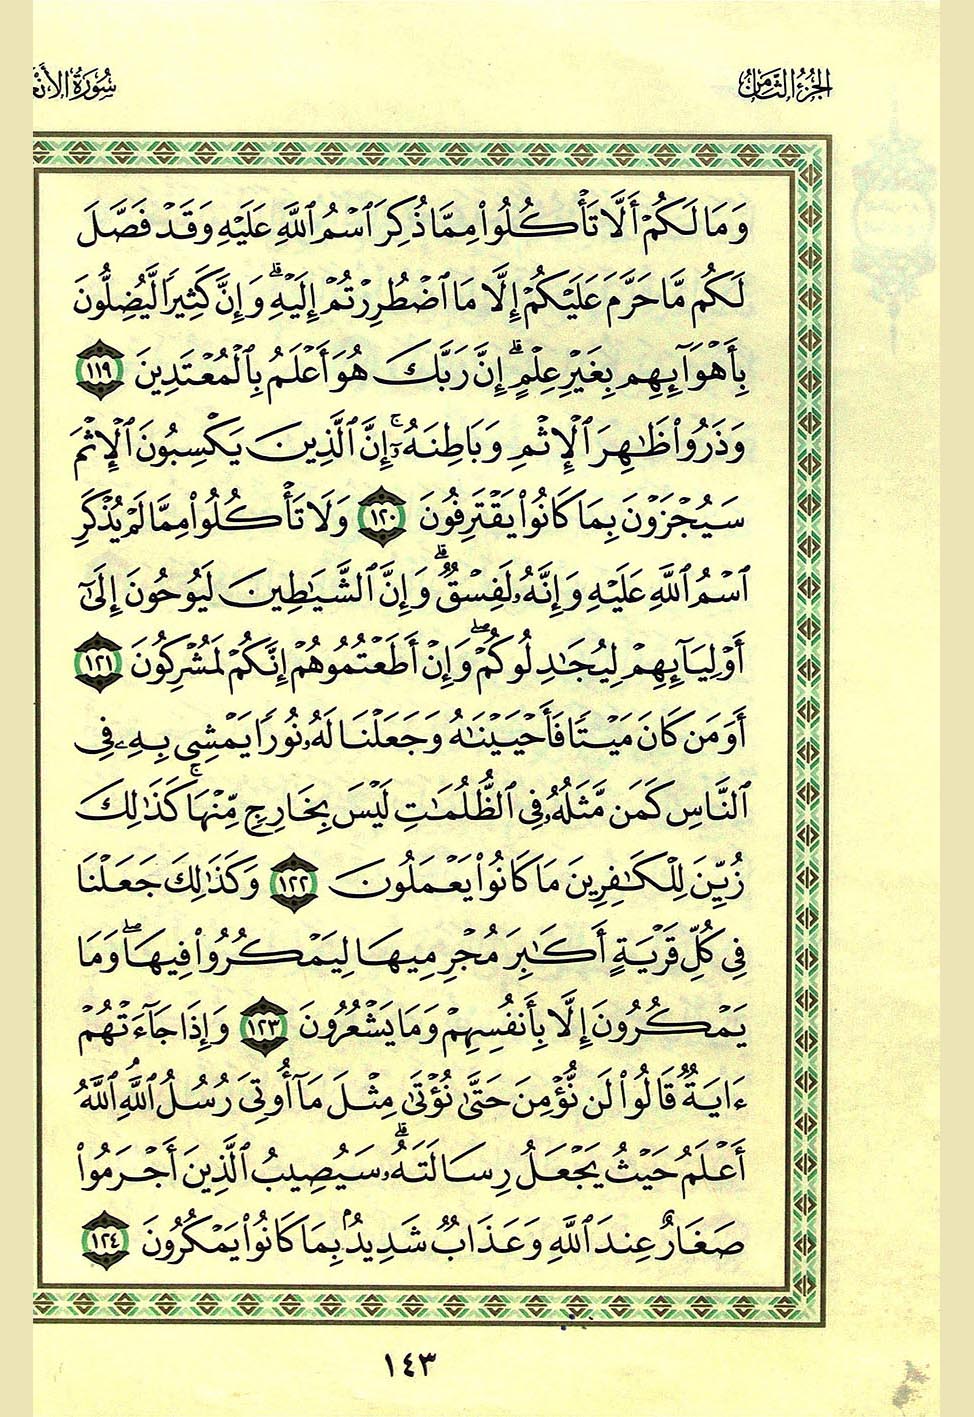 الجزء الثامن
سورة الأنع
وَمَا لَكُمْ أَلَّا تَأْكُلُوا۟ مِمَّا ذُكِرَ ٱسْمُ ٱللَّهِ عَلَيْهِ وَقَدْ فَصَّلَ
لَكُم مَّا حَرَّمَ عَلَيْكُمْ إِلَّا مَا ٱضْطُرِرْتُمْ إِلَيْهِ ۗ وَإِنَّ كَثِيرًا لَّيُضِلُّونَ
بِأَهْوَآئِهِم بِغَيْرِ عِلْمٍ ۗ إِنَّ رَبَّكَ هُوَ أَعْلَمُ بِٱلْمُعْتَدِينَ ١١٩
وَذَرُوا۟ ظَٰهِرَ ٱلْإِثْمِ وَبَاطِنَهُۥٓ ۚ إِنَّ ٱلَّذِينَ يَكْسِبُونَ ٱلْإِثْمَ
سَيُجْزَوْنَ بِمَا كَانُوا۟ يَقْتَرِفُونَ ١٢٠ وَلَا تَأْكُلُوا۟ مِمَّا لَمْ يُذْكَرِ
ٱسْمُ ٱللَّهِ عَلَيْهِ وَإِنَّهُۥ لَفِسْقٌ ۗ وَإِنَّ ٱلشَّيَٰطِينَ لَيُوحُونَ إِلَىٰٓ
أَوْلِيَآئِهِمْ لِيُجَٰدِلُوكُمْ ۖ وَإِنْ أَطَعْتُمُوهُمْ إِنَّكُمْ لَمُشْرِكُونَ ١٢١
أَوَمَن كَانَ مَيْتًا فَأَحْيَيْنَٰهُ وَجَعَلْنَا لَهُۥ نُورًا يَمْشِى بِهِۦ فِى
ٱلنَّاسِ كَمَن مَّثَلُهُۥ فِى ٱلظُّلُمَٰتِ لَيْسَ بِخَارِجٍ مِّنْهَا ۚ كَذَٰلِكَ
زُيِّنَ لِلْكَٰفِرِينَ مَا كَانُوا۟ يَعْمَلُونَ ١٢٢ وَكَذَٰلِكَ جَعَلْنَا
فِى كُلِّ قَرْيَةٍ أَكَٰبِرَ مُجْرِمِيهَا لِيَمْكُرُوا۟ فِيهَا ۖ وَمَا
يَمْكُرُونَ إِلَّا بِأَنفُسِهِمْ وَمَا يَشْعُرُونَ ١٢٣ وَإِذَا جَآءَتْهُمْ
ءَايَةٌ قَالُوا۟ لَن نُّؤْمِنَ حَتَّىٰ نُؤْتَىٰ مِثْلَ مَآ أُوتِىَ رُسُلُ ٱللَّهِ ۘ ٱللَّهُ
أَعْلَمُ حَيْثُ يَجْعَلُ رِسَالَتَهُۥ ۗ سَيُصِيبُ ٱلَّذِينَ أَجْرَمُوا۟
صَغَارٌ عِندَ ٱللَّهِ وَعَذَابٌ شَدِيدٌۢ بِمَا كَانُوا۟ يَمْكُرُونَ ١٢٤
١٤٣